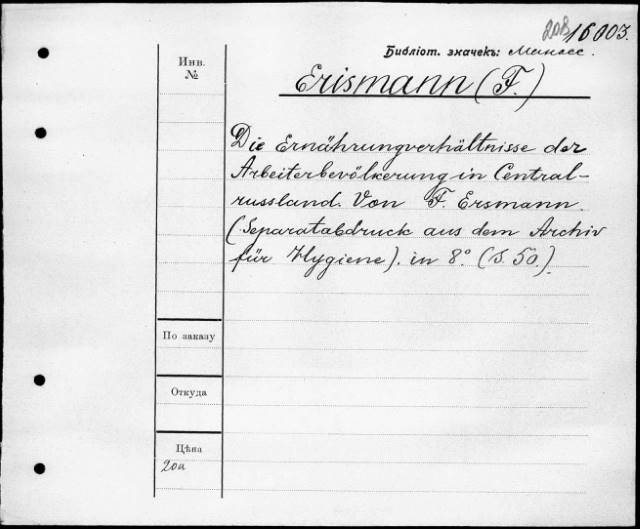 208 16003.
Библіот. значекъ: Манасс.
Инв.
№
Erismann (F.)
Die Ernährungverhältnisse der
Arbeiterbevölkerung in Central-
russland. Von F. Ersmann.
(Separatabdruck aus dem Archiv
für Hygiene). in 8° (S. 50).
По заказу
Откуда
Цѣна